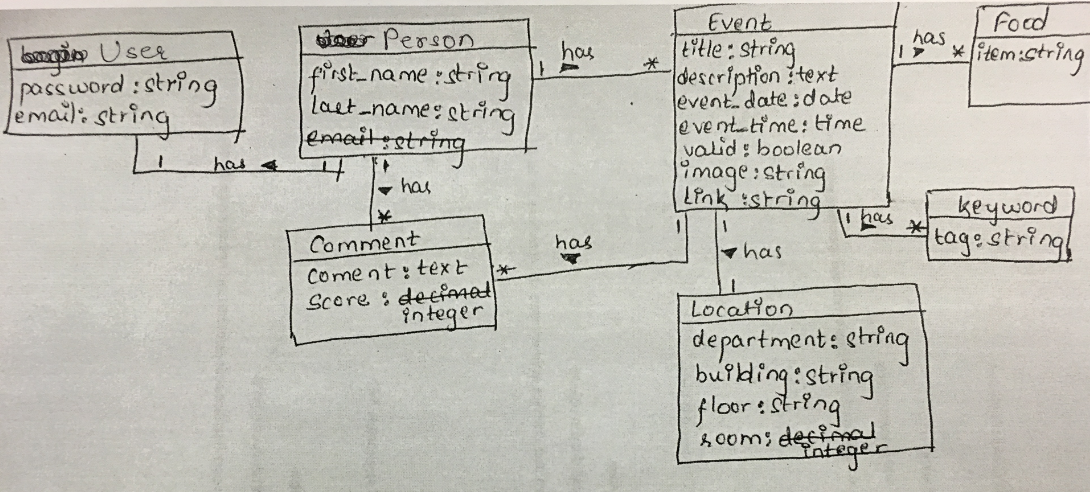 User
password : string
email : string
Person
first_name : string
last_name : string
email : string
Event
title : string
description : text
event_date : date
event_time : time
valid : boolean
image : string
link : string
Food
item : string
keyword
tag : string
Comment
coment : text
score : decimal
integer
Location
department : string
building : string
floor : string
room : decimal
integer
1 has 1
1 has *
1 has *
1 has *
1 has *
1 has *
1 has 1